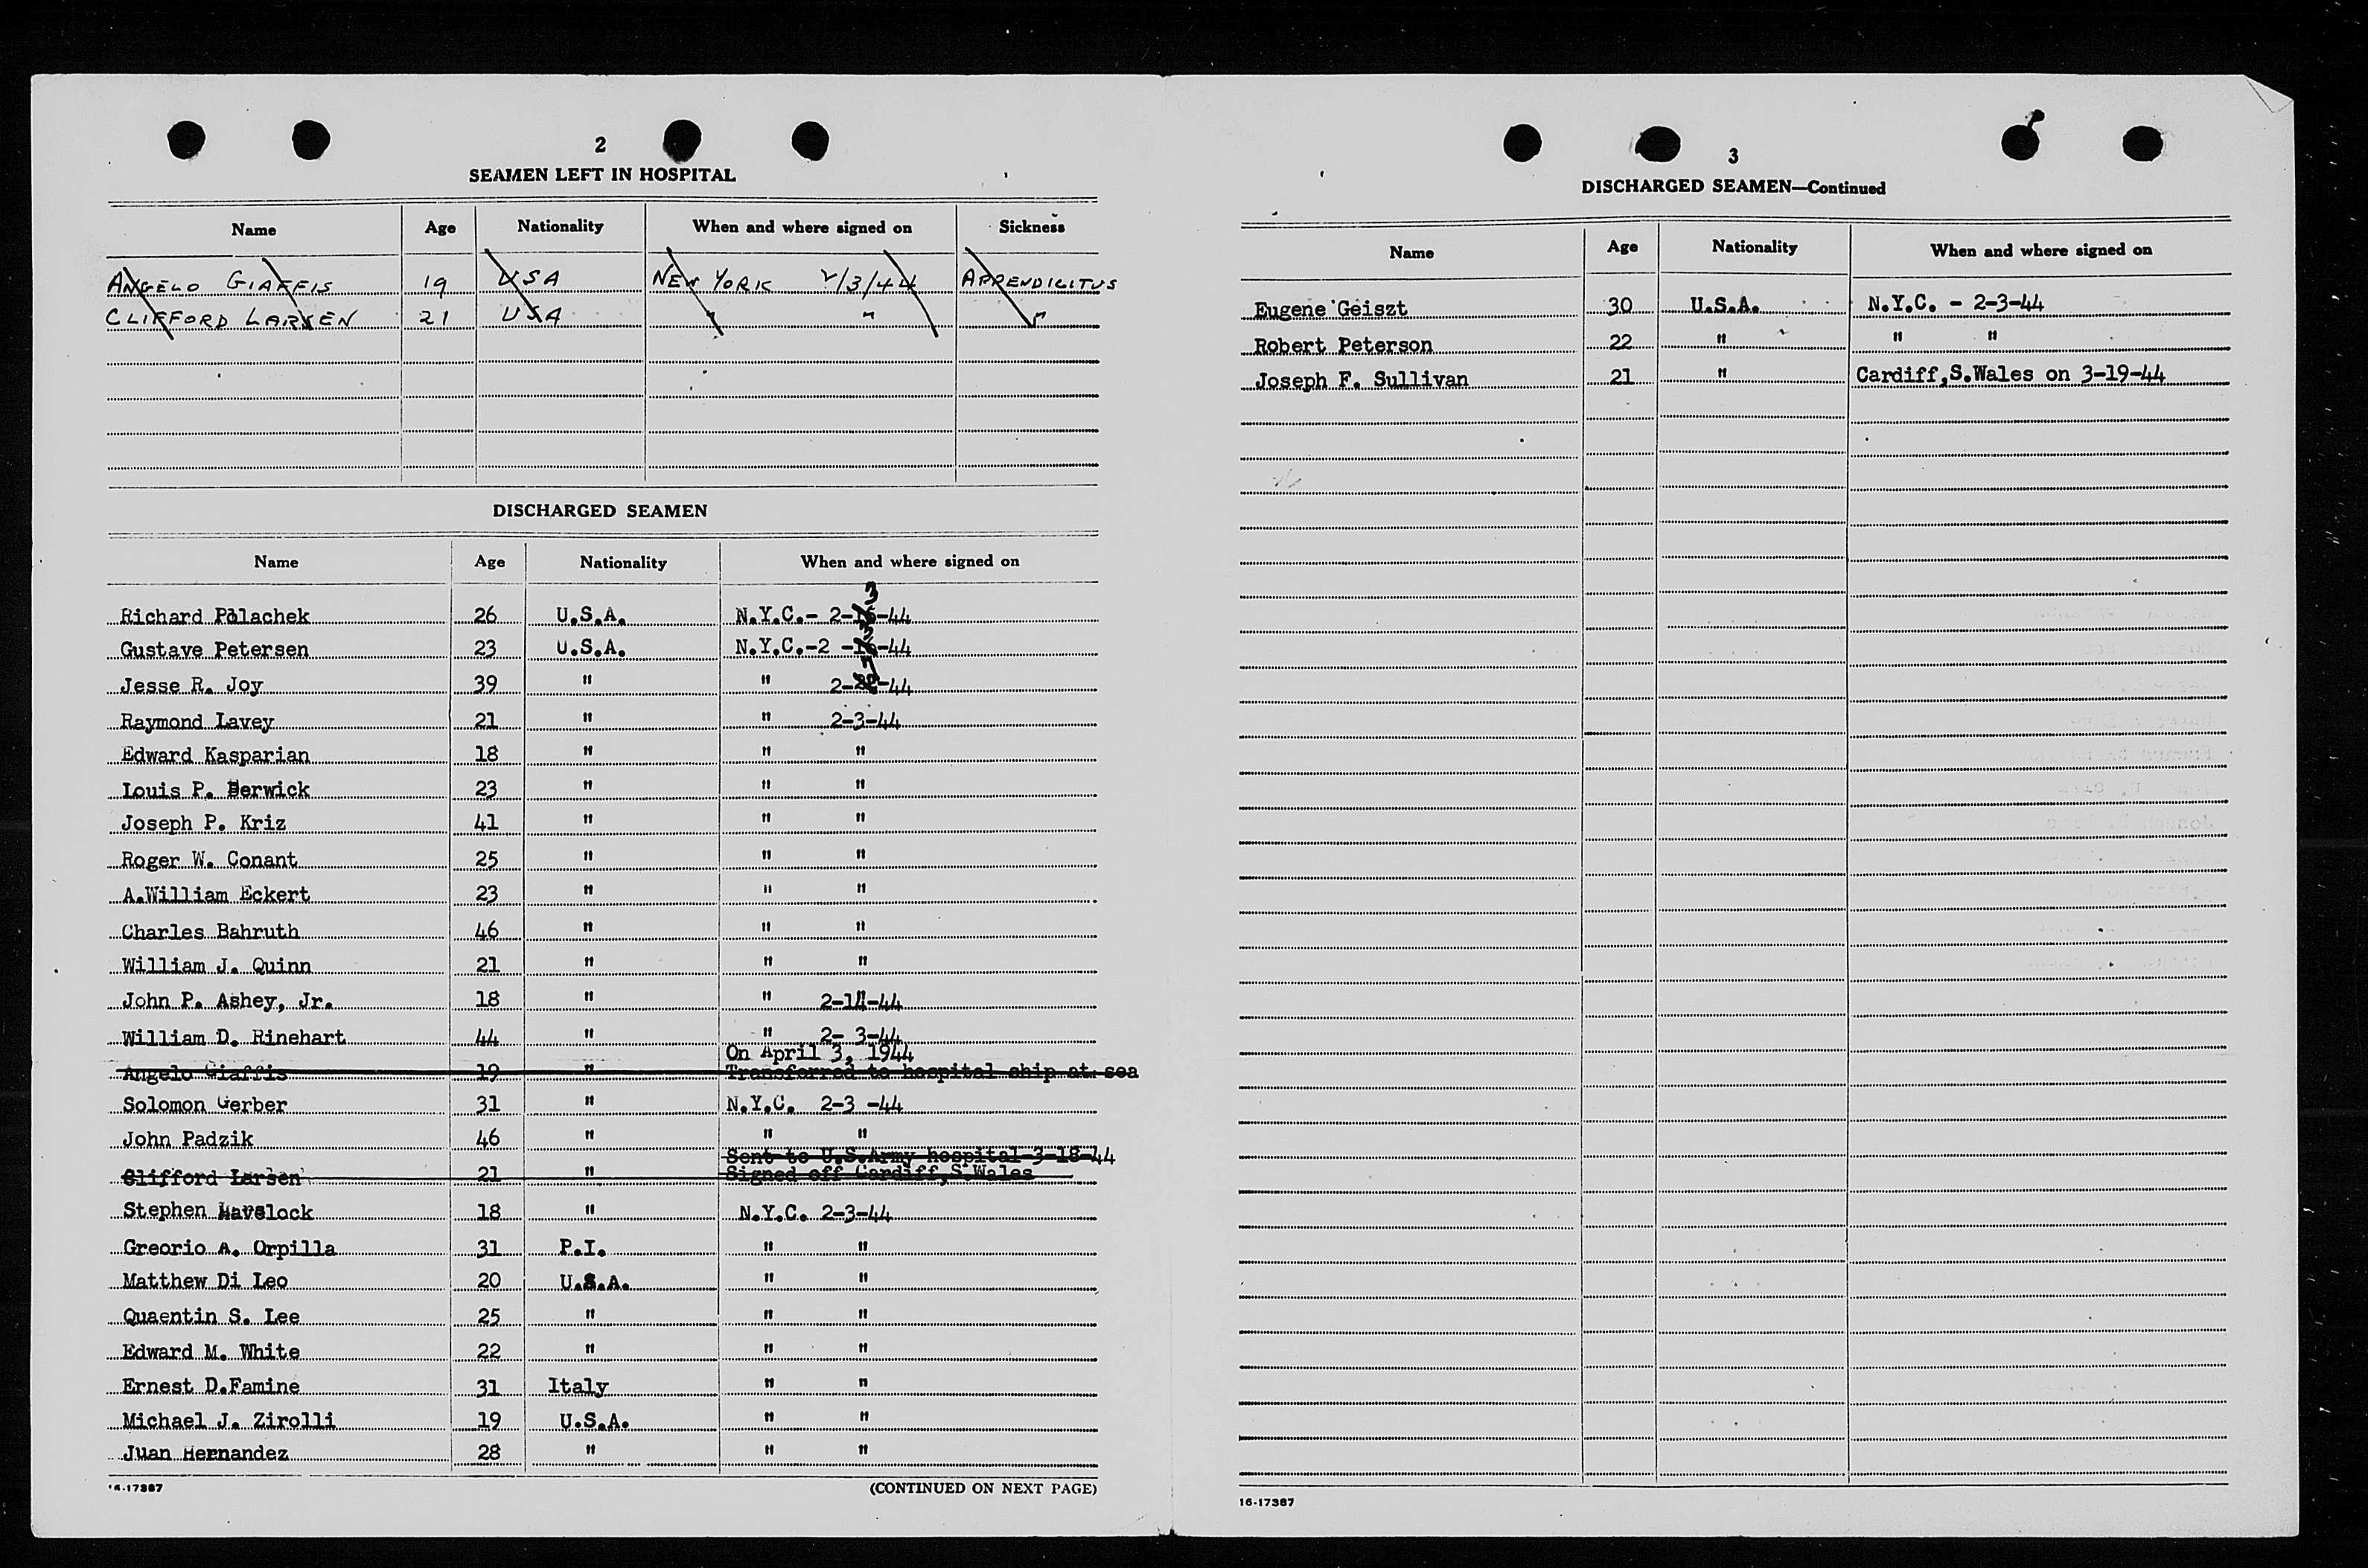 2
SEAMEN LEFT IN HOSPITAL
Name Age Nationality When and where signed on Sickness
ANGELO GIAFFIS 19 USA NEW YORK 2/3/44 APPENDICITUS
CLIFFORD LARSEN 21 USA " " "
DISCHARGED SEAMEN
Name Age Nationality When and where signed on
Richard Polachek 26 U.S.A. N.Y.C.- 2-3-44
Gustave Petersen 23 U.S.A. N.Y.C.-2 -3-44
Jesse R. Joy 39 " " 2- -44
Raymond Lavey 21 " " 2-3-44
Edward Kasparian 18 " " "
Louis P. Berwick 23 " " "
Joseph P. Kriz 41 " " "
Roger W. Conant 25 " " "
A.William Eckert 23 " " "
Charles Bahruth 46 " " "
William J. Quinn 21 " " "
John P. Ashey, Jr. 18 " " 2-14-44
William D. Rinehart 44 " " 2- 3-44
On April 3, 1944
Angelo Giaffis 19 " Transferred to hospital ship at sea
Solomon Gerber 31 " N.Y.C. 2-3 -44
John Padzik 46 " " "
Sent to U.S.Army hospital 3-18-44
Clifford Larsen 21 " Signed off Cardiff,S.Wales
Stephen Havelock 18 " N.Y.C. 2-3-44
Greorio A. Orpilla 31 P.I. " "
Matthew Di Leo 20 U.S.A. " "
Quaentin S. Lee 25 " " "
Edward M. White 22 " " "
Ernest D.Famine 31 Italy " "
Michael J. Zirolli 19 U.S.A. " "
Juan Hernandez 28 " " "
16-17387 (CONTINUED ON NEXT PAGE)
3
DISCHARGED SEAMEN—Continued
Name Age Nationality When and where signed on
Eugene Geiszt 30 U.S.A. N.Y.C. - 2-3-44
Robert Peterson 22 " " "
Joseph F. Sullivan 21 " Cardiff,S.Wales on 3-19-44
16-17387